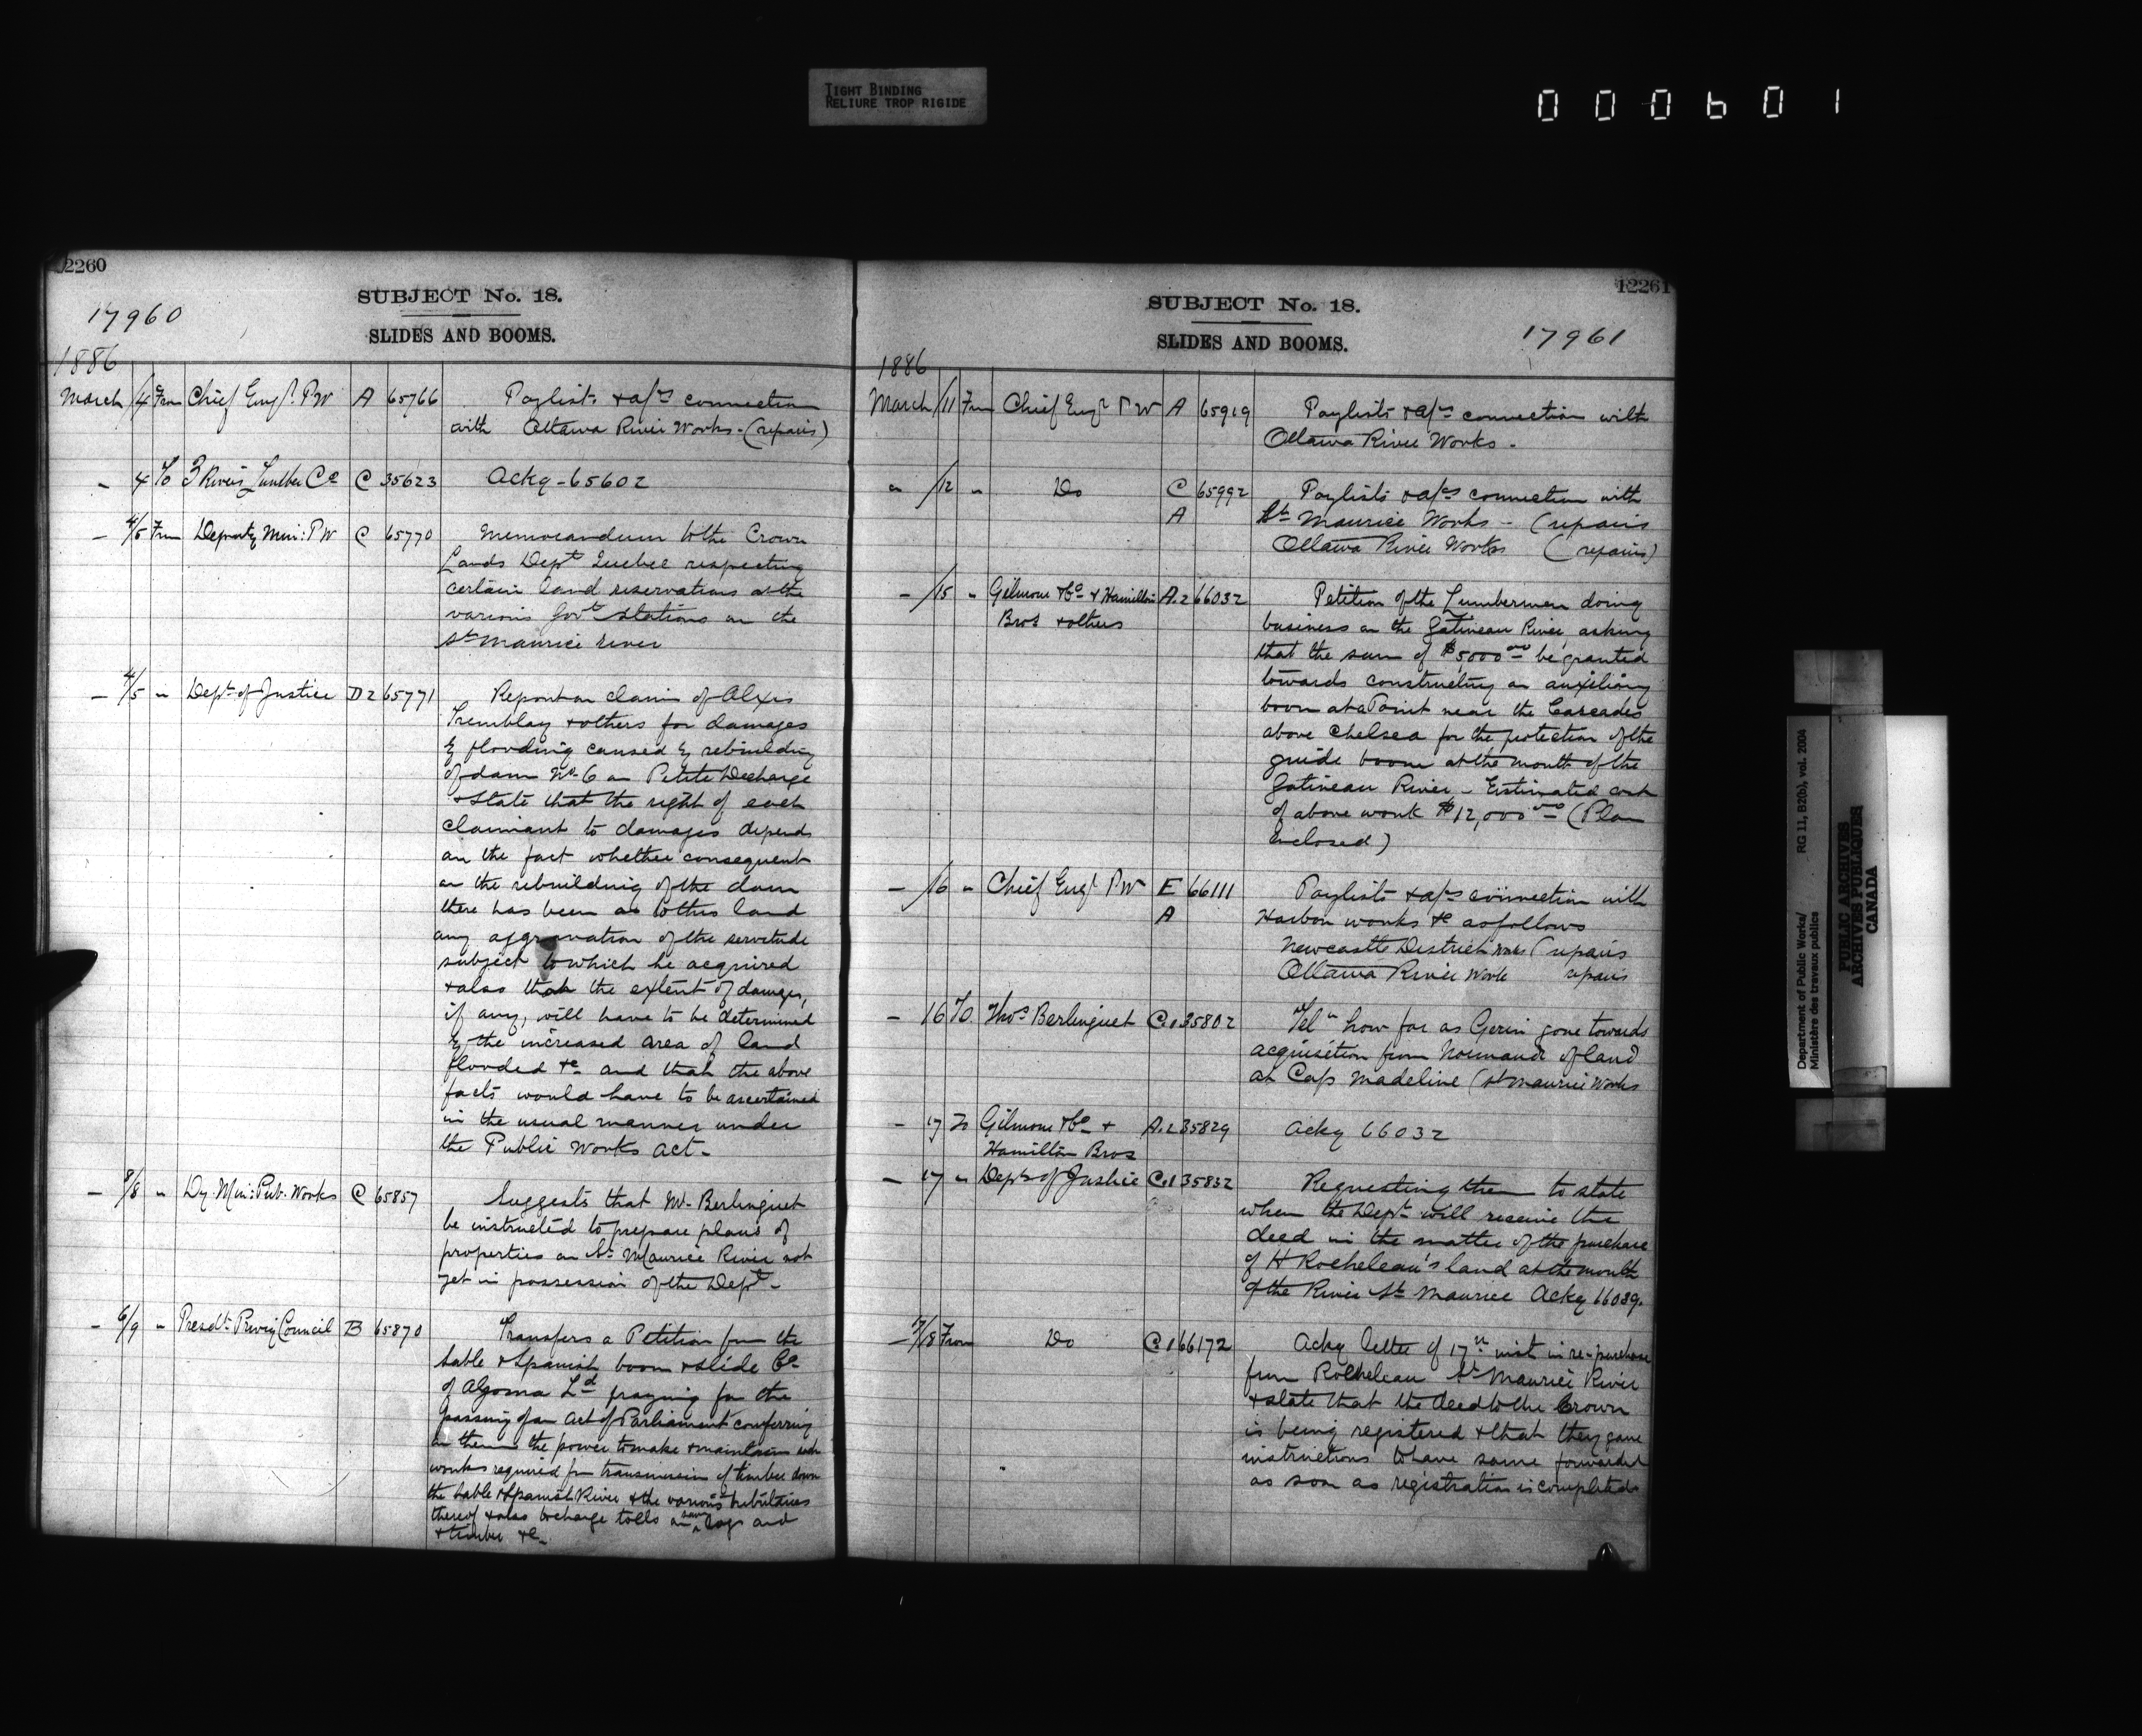 TIGHT BINDING
RELIURE TROP RIGIDE
000601
12260
SUBJECT No. 18.
17960
SLIDES AND BOOMS.
1886
March /4 From Chief Engr. PW A 65766 Paylists & a/cs connection
with Ottawa River Works - (repairs)
- 4 To 3 Rivers Lumber Co C 35623 Ackg - 65602
- 4/5 From Deputy Min: PW C 65770 Memorandum to the Crown
Lands Dept Quebec respecting
certain land reservations at the
various Govt stations on the
St Maurice river
- 4/5 " Dept. of Justice D2 65771 Report on claim of Alxis
Tremblay & others for damages
by flooding caused by rebuilding
of dam No 6 on Petite Decharge
& state that the right of each
claimant to damages depends
on the fact whether consequent
on the rebuilding of the dam
there has been as to this land
any aggravation of the servitude
subject to which he acquired
& also that the extent of damages,
if any, will have to be determined
by the increased area of land
flooded &c and that the above
facts would have to be ascertained
in the usual manner under
the Public Works Act -
- 8/8 " Dy. Min: Pub. Works C 65857 Suggests that Mr. Berlinguet
be instructed to prepare plans of
properties on St. Maurice River not
yet in possession of the Dept -
- 6/9 " Presdt. Privy Council B 65870 Transfers a Petition from the
Sable & Spanish boom & slide Co
of Algoma Ld praying for the
passing of an Act of Parliament conferring
on them the power to make & maintain such
works required for transmission of timber down
the Sable & Spanish River & the various tributaries
thereof & also to charge tolls on saw logs and
& timber &c -
12261
SUBJECT No. 18.
17961
SLIDES AND BOOMS.
1886
March /11 From Chief Engr PW A 65919 Paylists & a/cs connection with
Ottawa River Works -
" /12 " Do C 65992 Paylists & a/cs connection with
A St Maurice Works - (repairs
Ottawa River Works (repairs)
- /15 " Gilmour & Co & Hamilton A.2 66032 Petition of the Lumbermen doing
Bros & others business on the Gatineau River asking
that the sum of $5000 00 be granted
towards constructing an auxiliary
boom at a Point near the Cascades
above Chelsea for the protection of the
guide boom at the mouth of the
Gatineau River - Estimated cost
of above work $12,000 00 (Plan
Enclosed)
- /16 " Chief Engr PW E 66111 Paylists & a/cs connection with
A Harbor works &c as follows
Newcastle District Works (repairs
Ottawa River Works repairs
- 16 To Thos Berlinguet C.1 35802 Telm how far as Gerin gone towards
acquisition from Normand of land
at Cap Madeline (St Maurice Works
- 17 To Gilmour & Co & A.2 35829 Ackg 66032
Hamilton Bros
- 17 " Dept of Justice C.1 35832 Requesting them to state
when the Dept will receive the
deed in the matter of the purchase
of H Rocheleau's land at the mouth
of the River St Maurice Ackg 66039.
- 17/18 From Do C.1 66172 Ackg letter of 17th inst in re-purchase
from Rocheleau St Maurice River
& state that the deed to the Crown
is being registered & that they gave
instructions to have same forwarded
as soon as registration is completed
Department of Public Works/
Ministère des travaux publics
RG 11, B2(b), vol. 2004
PUBLIC ARCHIVES
ARCHIVES PUBLIQUES
CANADA